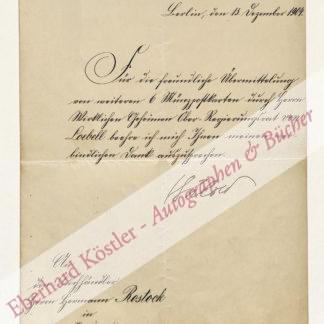 Berlin, den 13. Dezember 1904.
Für die freundliche Übermittelung
von weiteren 6 Münzpostkarten durch Herrn
Wirklichen Geheimen Ober Regierungsrat von
Loebell beehre ich mich Ihnen meinen
bindlichen Dank auszusprechen.
An
Buchhändler
Herrn Hermann Rostock
in
Eberhard Köstler - Autographen & Bücher